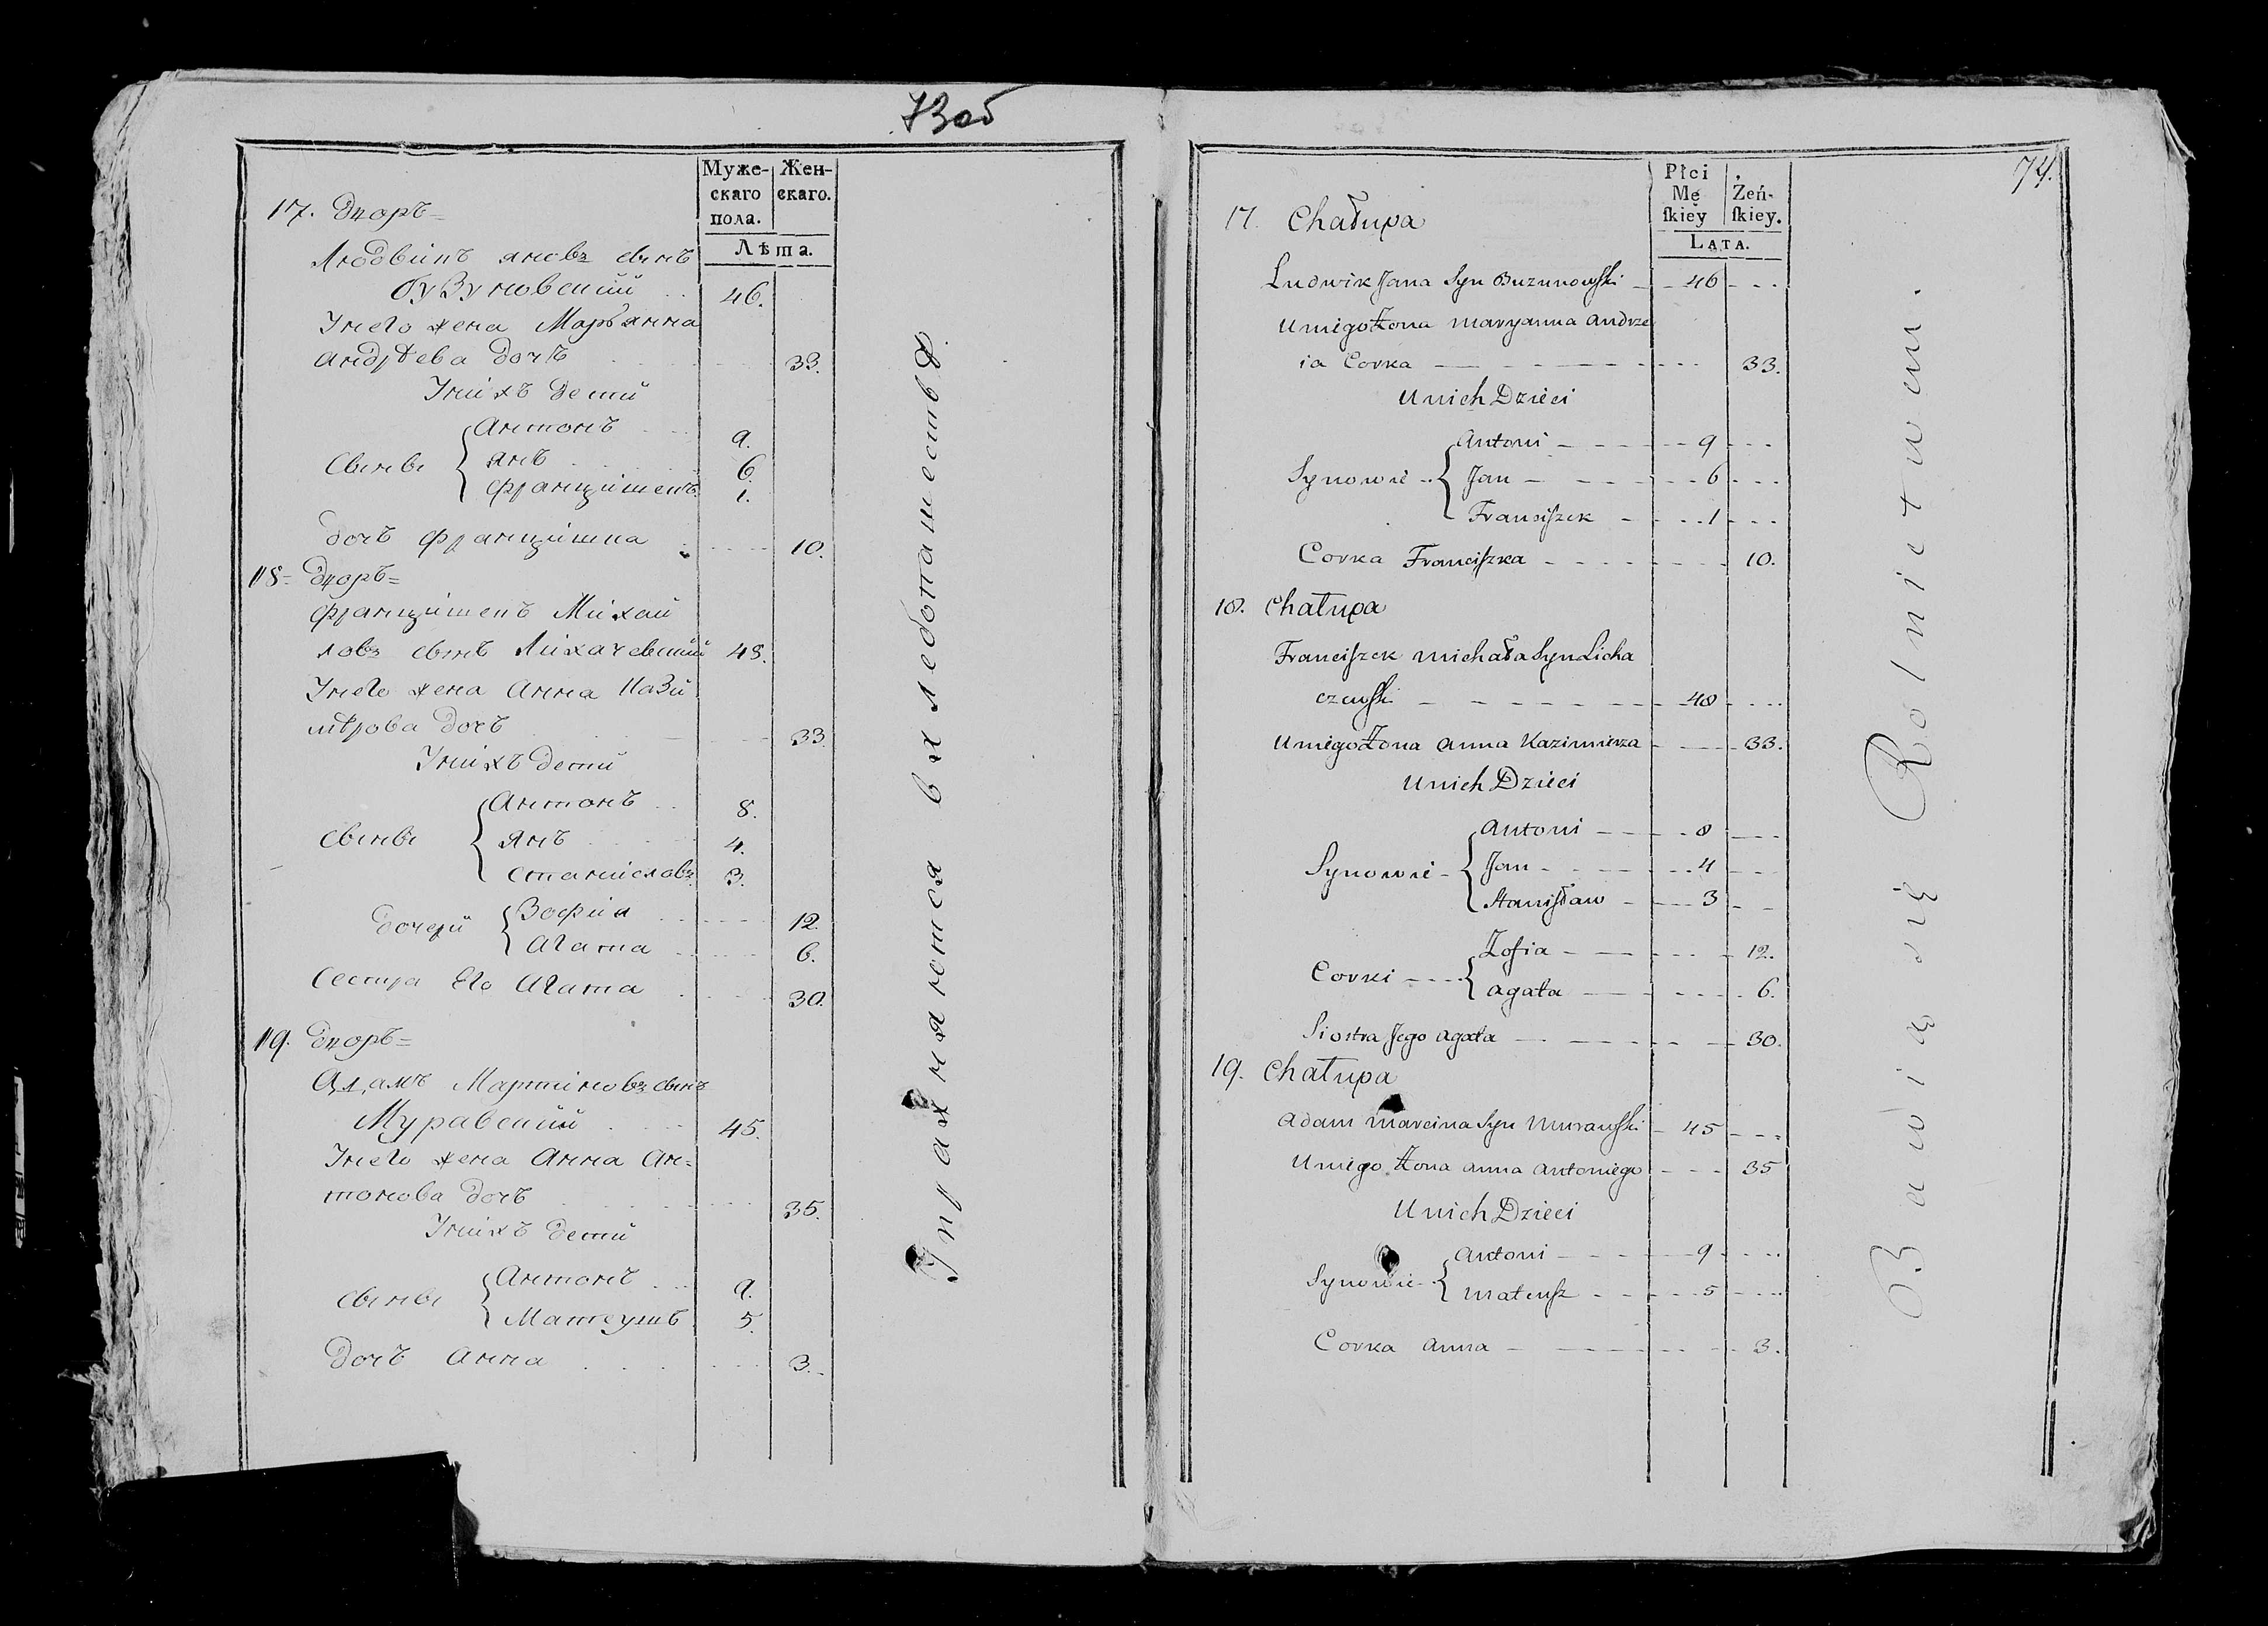 73об
Муже-
скаго
пола.
Жен-
скаго.
Лѣта.
17. Дворъ=
Людвикъ яновъ сынъ
бузуновский 46.
Унего жена Марьянна
андрѣева дочъ 33.
Унихъ дети
Сынвы
Антонъ 9.
янъ 6.
францишекъ 1.
дочъ францишка 10.
18= Дворъ=
францишекъ Михай
ловъ сынъ Лихачевский 48.
Унего жена Анна Кази
мѣрова дочъ 33.
Унихъ дети
Сынвы
Антонъ 8.
янъ 4.
Станиславъ 3.
дочери
Зофия 12.
Агата 6.
Сестра Его Агата 30.
19. Дворъ=
Адамъ Мартиновъ сынъ
Муравский 45.
Унего жена Анна Ан=
тонова дочъ 35.
Унихъ дети
Сынвы
Антонъ 9.
Матеушъ 5.
Дочъ Анна 3.
Упражняются въ хлебопашествѣ.
74.
Płci
Mę
ſkiey
Żeń-
ſkiey.
LATA.
17. Chałupa
Ludwik Jana Syn Buzunowſki 46
Uniego Żona Maryanna Andrze
ia Corka 33.
Unich Dzieci
Synowie
Antoni 9
Jan 6
Franciſzek 1
Corka Franciſzka 10.
18. Chałupa
Franciſzek Michała Syn Licha
czewſki 48
Uniego Żona Anna Kazimierza 33.
Unich Dzieci
Synowie
Antoni 8
Jan 4
Staniſław 3
Corki
Zofia 12.
Agata 6.
Siostra Jego Agata 30.
19. Chałupa
Adam Marcina Syn Murawſki 45
Uniego Żona Anna Antoniego 35
Unich Dzieci
Synowie
Antoni 9
Mateuſz 5
Corka Anna 3.
Bawią się Rolnictwem.